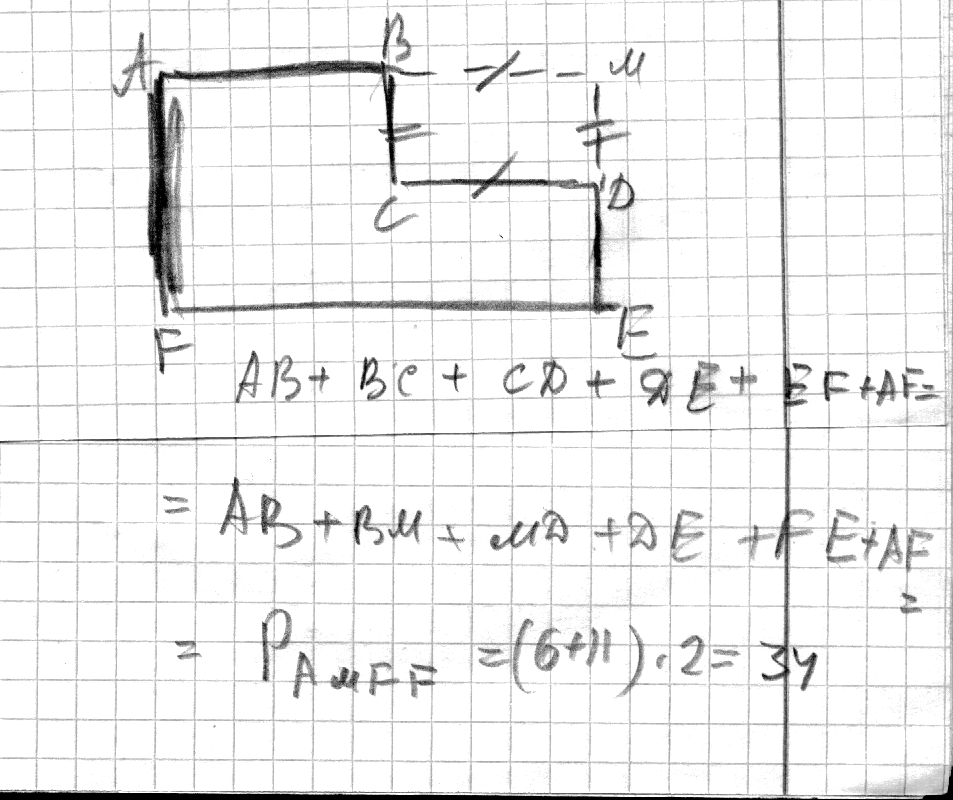 A B M
C D
F E
AB + BC + CD + DE + EF + AF =
= AB + BM + MD + DE + FE + AF
=
= P AMFF = (6+11) · 2 = 34